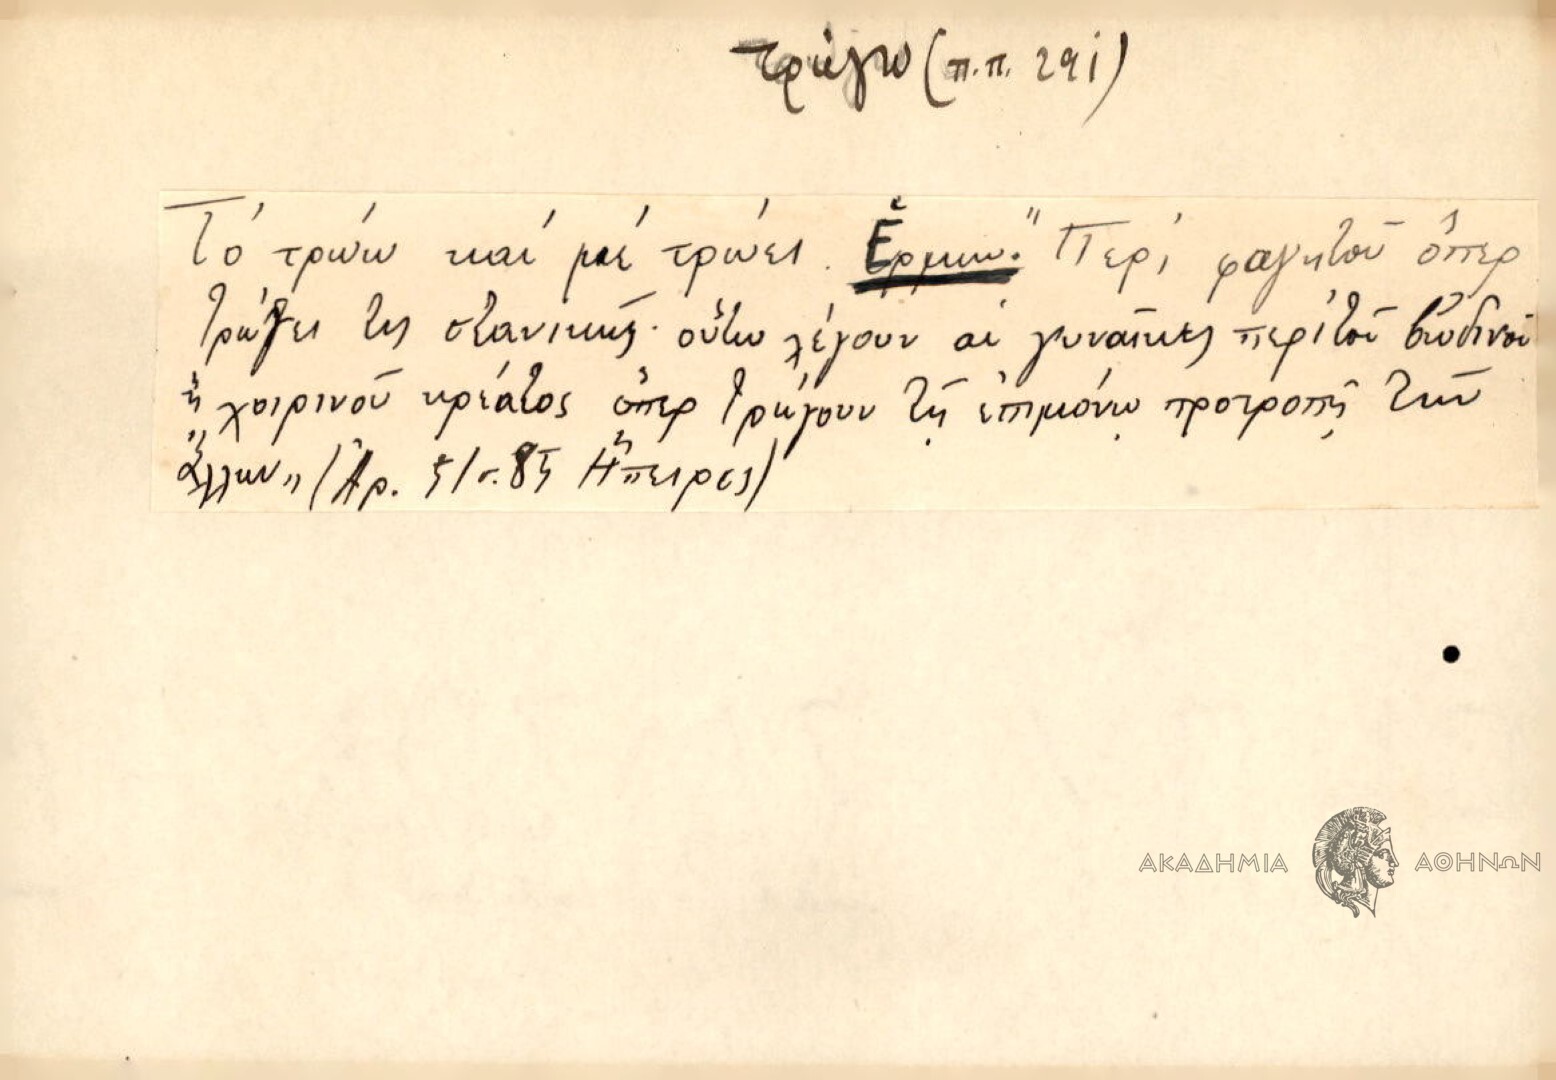 τρώγω (π.π. 291)
Τό τρώω καί μέ τρώει. Ἑρμην." Περί φαγητοῦ ὅπερ
τρώγει τις στανικῶς· οὕτω λέγουν αἱ γυναῖκες περί τοῦ βωδινοῦ
ἤ χοιρινοῦ κρέατος ὅπερ τρώγουν τῇ ἐπιμόνῳ προτροπῇ τῶν
ἄλλων" (Ἀρ. σ. Ἤπειρος)
ΑΚΑΔΗΜΙΑ ΑΘΗΝΩΝ